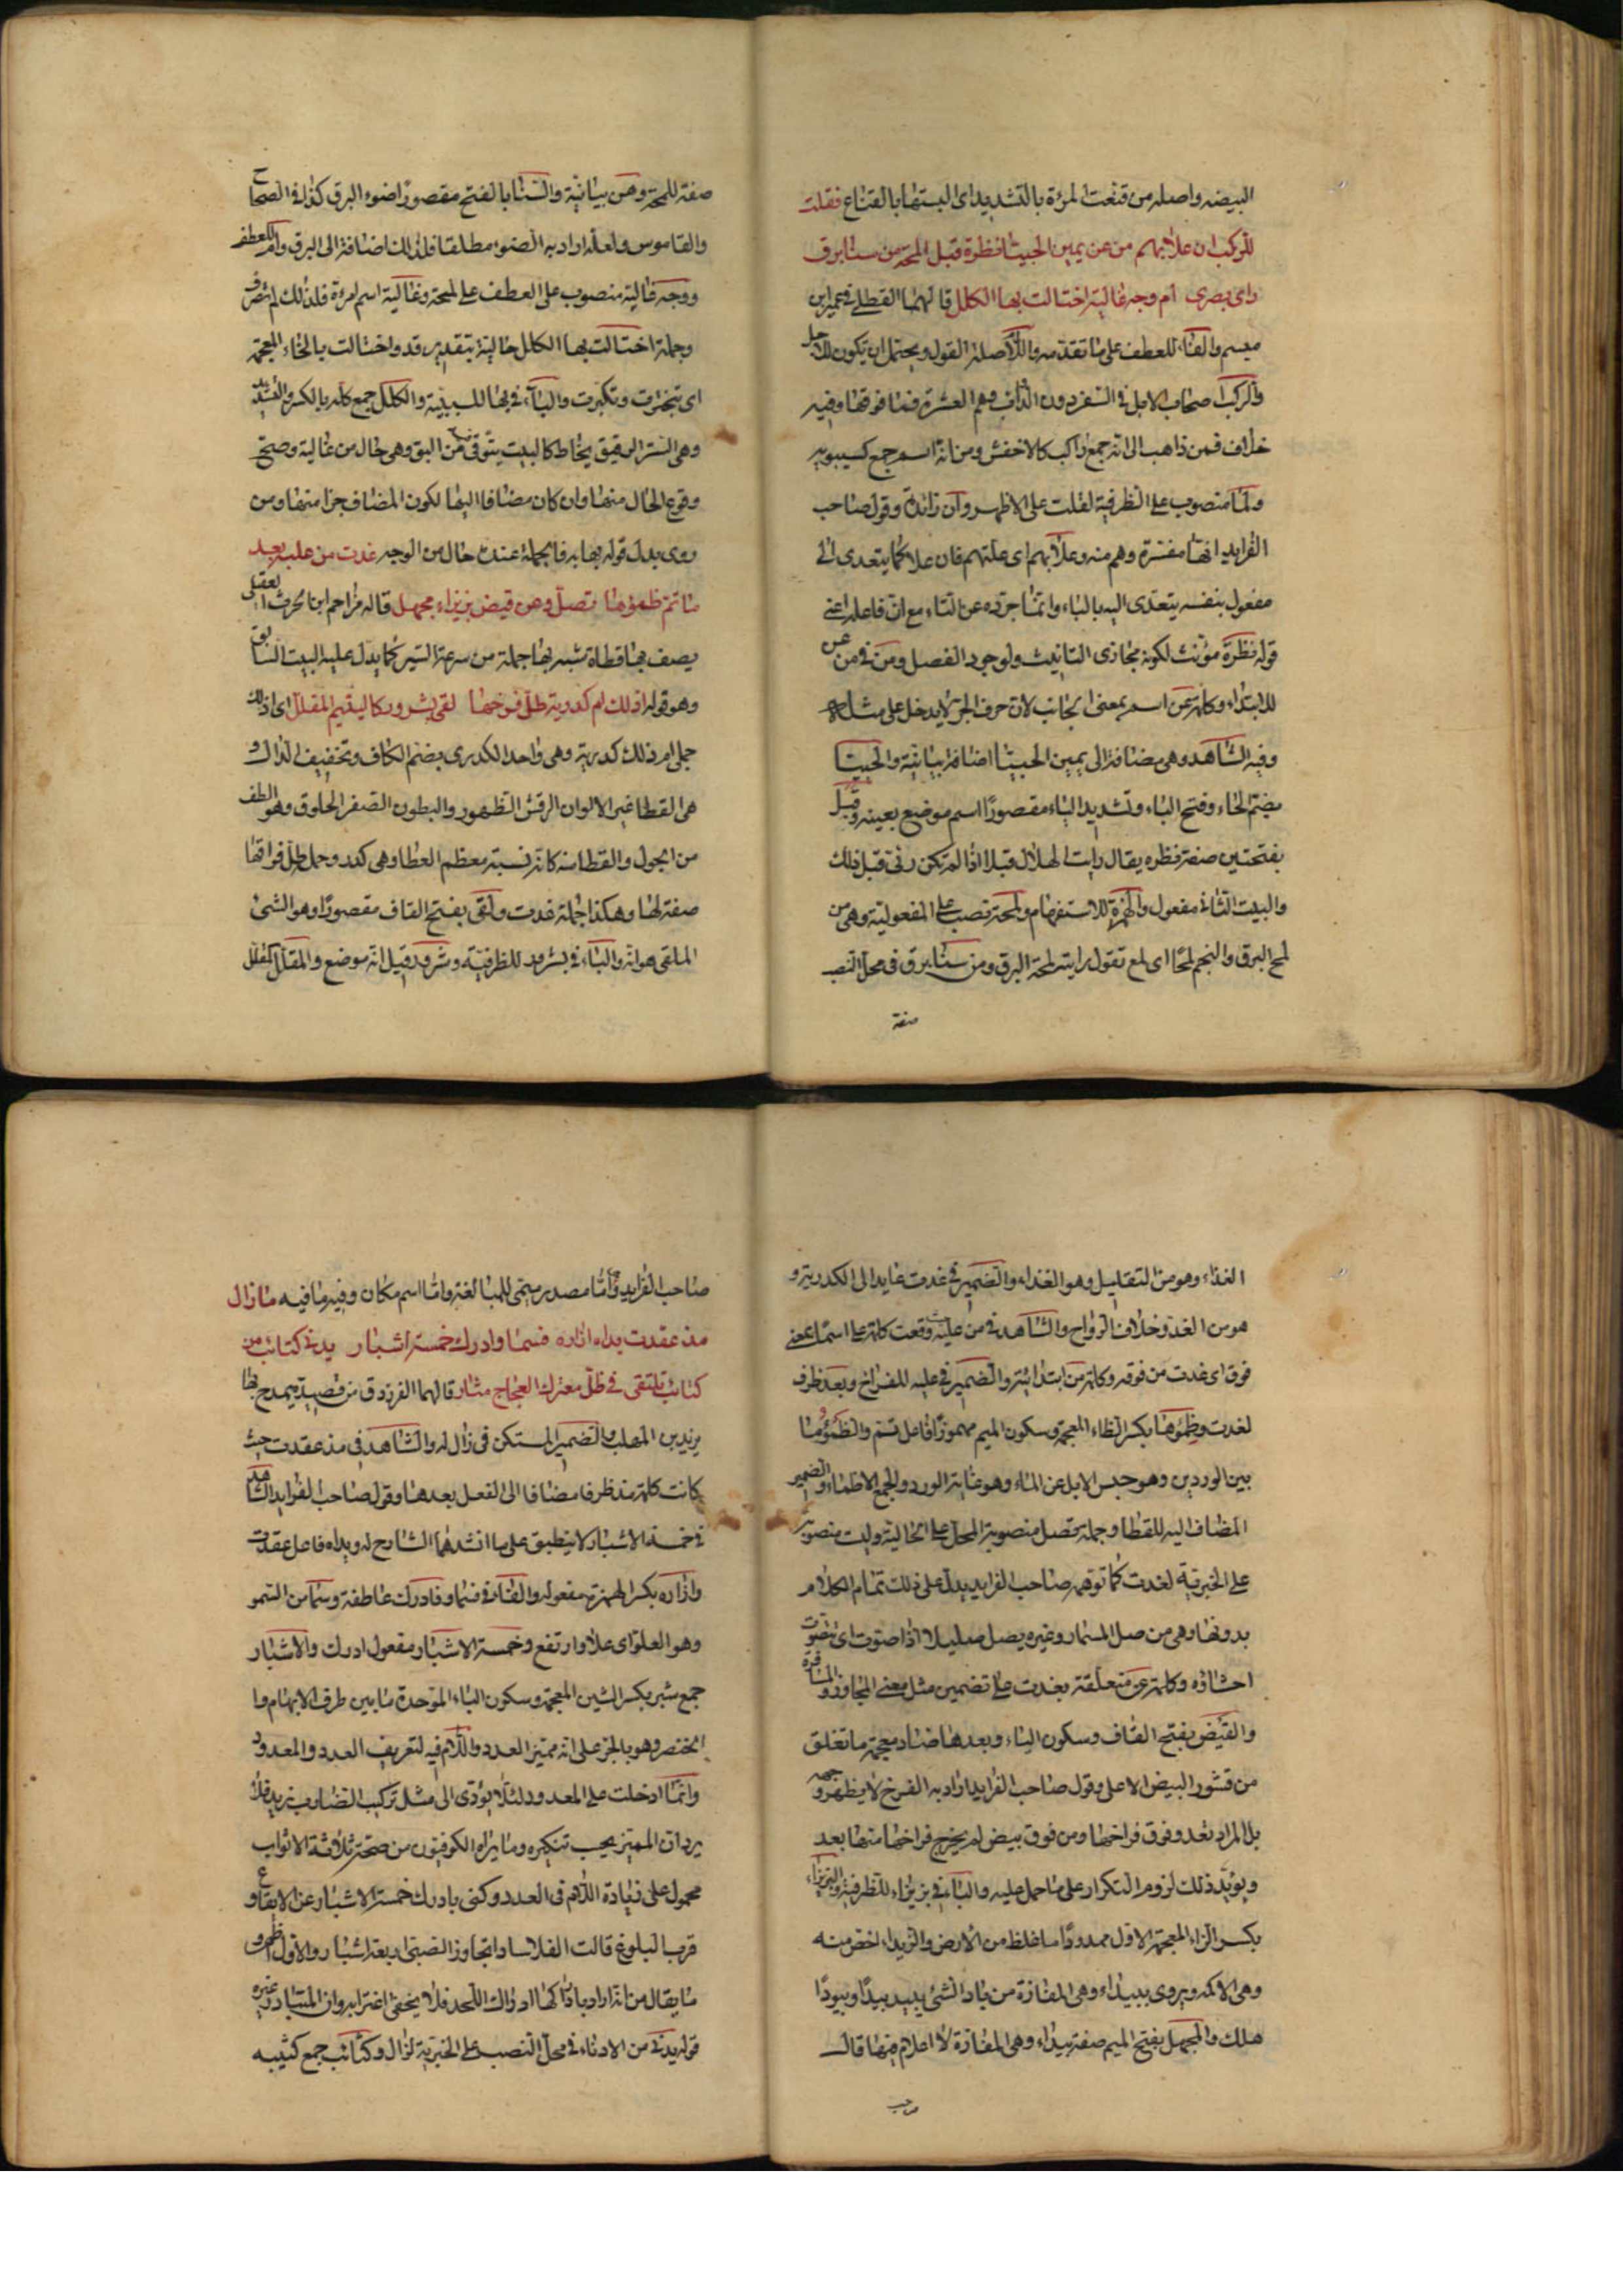 البيضه واصله من قنعت المرءة بالتشديد اى البستها بالقناع فقلت
للركب ان علا بهم من عن يمين الحبيا نظرة قبل المحة من سنا برق
راى بصرى ام وجه عالية اختالت بها الكلل قالهما القطامى عمير ابن
والفاء للعطف على ما تقدمه واللام صلة القول ويحتمل ان يكون للاجل
والركب اصحاب الابل فى السفر دون الدواب وهم العشرة فما فوقها وفيه
خلاف فمن ذاهب الى انه جمع راكب كالاخفش ومن انه اسم جمع كسيبويه
ولما منصوب على الظرفية لقلت على الاظهر وان زائدة وقول صاحب
الفرايد انها مفسرة وهم منه وعلا بهم اى علتهم فان علا كما يتعدى الى
مفعول بنفسه يتعدى اليه بالباء وانما جرده عن التاء مع ان فاعله اعنى
قوله نظرة مؤنث لكونه مجازى التانيث ولوجود الفصل ومن فى من عن
للابتداء وكلمة عن اسم بمعنى الجانب لان حرف الجر لا يدخل على مثله
وفيه الشاهد وهى مضافة الى يمين الحبيا اضافة بيانية والحبيا
بضم الحاء وفتح الباء وتشديد الياء مقصورا اسم موضع بعينه وقبل
بفتحتين صفة نظره يقال رايت الهلال قبلا اذا لم تكن رئى قبل ذلك
والبيت الثانى مفعول والهمزة للاستفهام ولمحة نصب على المفعولية وهى من
لمح البرق والنجم لمحا اى لمع تقول رايته لمحة البرق ومن سنا برق فى محل النصب
صفة
صفة للمحة ومن بيانية والسنا بالفتح مقصورا ضوء البرق كذا فى الصحاح
والقاموس ولعله اراد به الضوء مطلقا فلذلك اضافة الى البرق وام للعطف
ووجه عالية منصوب على العطف على لمحة وعالية اسم امرءة فلذلك لم تصرف
وجملة اختالت بها الكلل حالية بتقدير قد واختالت بالخاء المعجمة
اى تبخترت وتكبرت والباء فى بها للسببية والكلل جمع كله بالكسر والتشديد
وهى الستر الرقيق يخاط كالبيت يتوقى فيه من البق وهى حال من عالية وصح
وقوع الحال منها وان كان مضافا اليها لكون المضاف جزا منها ومن
روى بدل قوله بها به فالجملة عنده حال من الوجه غدت من عليه بعد
ما تم ظمؤها تصل وعن قيض بزيزاء مجهل قاله مزاحم ابن الحرث العقيلى
يصف بها قطاة شبه بها جملة من سرعة السير كما يدل عليه البيت السابق
وهو قوله اذلك ام كدرية ظل فرخها لقى بشرورى كاليتيم المقلل اى اذلك
جملى ام ذلك كدرية وهى واحد الكدرى بضم الكاف وتخفيف الدال و
هى القطا غبر الالوان الرقش الظهور والبطون الصفر الحلوق وهو الطف
من الجول والقطا منه كانه نسبة معظم القطا وهى كدر وجملة ظل فراقها
صفة لها وهكذا جملة غدت ولقى بفتح القاف مقصورا وهو الشئ
الملقى هوانه والباء فى بشرورى للظرفية وشرورى قيل انه موضع والمقلل كمقلل
الغذاء وهو من التقليل وهو الغذاء والضمير فى غدت عايد الى الكدرية و
هو من الغدو خلاف الرواح والشاهد فى من عليه حيث وقعت كلمة على اسما بمعنى
فوق اى غدت من فوقه وكلمة من ابتدائية والضمير فى عليه للفراخ وبعد ظرف
لغدت وظمؤها بكسر الظاء المعجمة وسكون الميم مهموزا فاعل تم والظمؤ ما
بين الوردين وهو حبس الابل عن الماء وهو غاية الورد والجمع الاظماء والضمير
المضاف اليه للقطا وجملة تصل منصوبة المحل على الحالية وليت منصوبة
على الخبرية لغدت كما توهمه صاحب الفرايد يدل على ذلك تمام الكلام
بدونها وهى من صل المسمار وغيره يصل صليلا اذا صوت اى تصوت
احشاؤه وكلمة عن متعلقة بغدت على تضمين مثل معنى المجاوزة والمسافرة
والقيض بفتح القاف وسكون الياء وبعدها ضاد معجمة ما تغلق
من قشور البيض الاعلى وقول صاحب الفرايد اراد به الفرخ لا يظهر وجهه
بل المراد تغدو فوق فراخها ومن فوق بيض لم يخرج فراخها منها بعد
ويؤيد ذلك لزوم التكرار على ما حمل عليه والباء فى بزيزاء للظرفية والزيزاء
بكسر الزاء المعجمة الاول ممدودا ما غلظ من الارض والزيزاء اخص منه
وهى الاكمه ويروى ببيداء وهى المفازة من باد الشئ يبيد بيدا وبيودا
هلك والمجهل بفتح الميم صفة بيداء وهى المفازة لا اعلام فيها قال
صاحب
صاحب الفرايد واما مصدر ميمى للمبالغة واما اسم مكان وفيه ما فيه ما زال
مذ عقدت يداه ازاره فسما وادرك خمسة اشبار يدنى كتائب من
كتائب تلتقى فى ظل معترك العجاج مثار قالهما الفرزدق من قصيدة يمدح بها
يزيد بن المهلب والضمير المستكن فى زال له والشاهد فى مذ عقدت حيث
كانت كلمة مذ ظرفا مضافا الى الفعل بعدها وقول صاحب الفرايد الشاهد
فى خمسة الاشبار لا ينطبق على ما انشدهما الشارح له ويداه فاعل عقدت
وازاره بكسر الهمزة مفعوله والفاء فى فسما وفادرك عاطفة وسما من السمو
وهو العلو اى علا وارتفع وخمسة الاشبار مفعول ادرك والاشبار
جمع شبر بكسر الشين المعجمة وسكون الباء الموحدة ما بين طرف الابهام وا
لخنصر وهو بالجر على انه مميز العدد واللام فيه لتعريف العدد والمعدود
وانما ادخلت على المعدود لئلا يؤدى الى مثل تركيب الضارب زيد فلا
يرد ان المميز يجب تنكيره وما يراه الكوفيون من صحة ثلاثة الاثواب
محمول على زيادة اللام فى العدد وكنى بادرك خمسة الاشبار عن الايفاع و
قرب البلوغ قالت الفلاسفة اذا تجاوز الصبى اربعة اشبار والاول اظهر و
ما يقال من انه اراد بادراكها ادراك اللحد فلا يخفى اغترابه وان المتبادر غيره
قوله يدنى من الادناء فى محل النصب على الخبرية لزال وكتائب جمع كتيبه